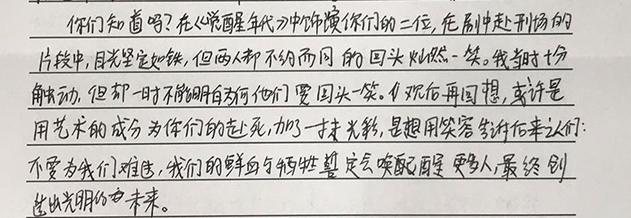 你们知道吗?在《觉醒年代》中饰演你们的二位,在剧中赴刑场的
片段中,目光坚定如铁,但两人都不约而同的回头灿然一笑。我当时十分
触动,但却一时不能明白为何他们要回头一笑。观后再回想,或许是
用艺术的成分为你们的赴死,加了一抹光彩,是想用笑容告诉后来人们:
不要为我们难过,我们的鲜血与牺牲一定会唤醒更多人,最终创
造出光明的未来。